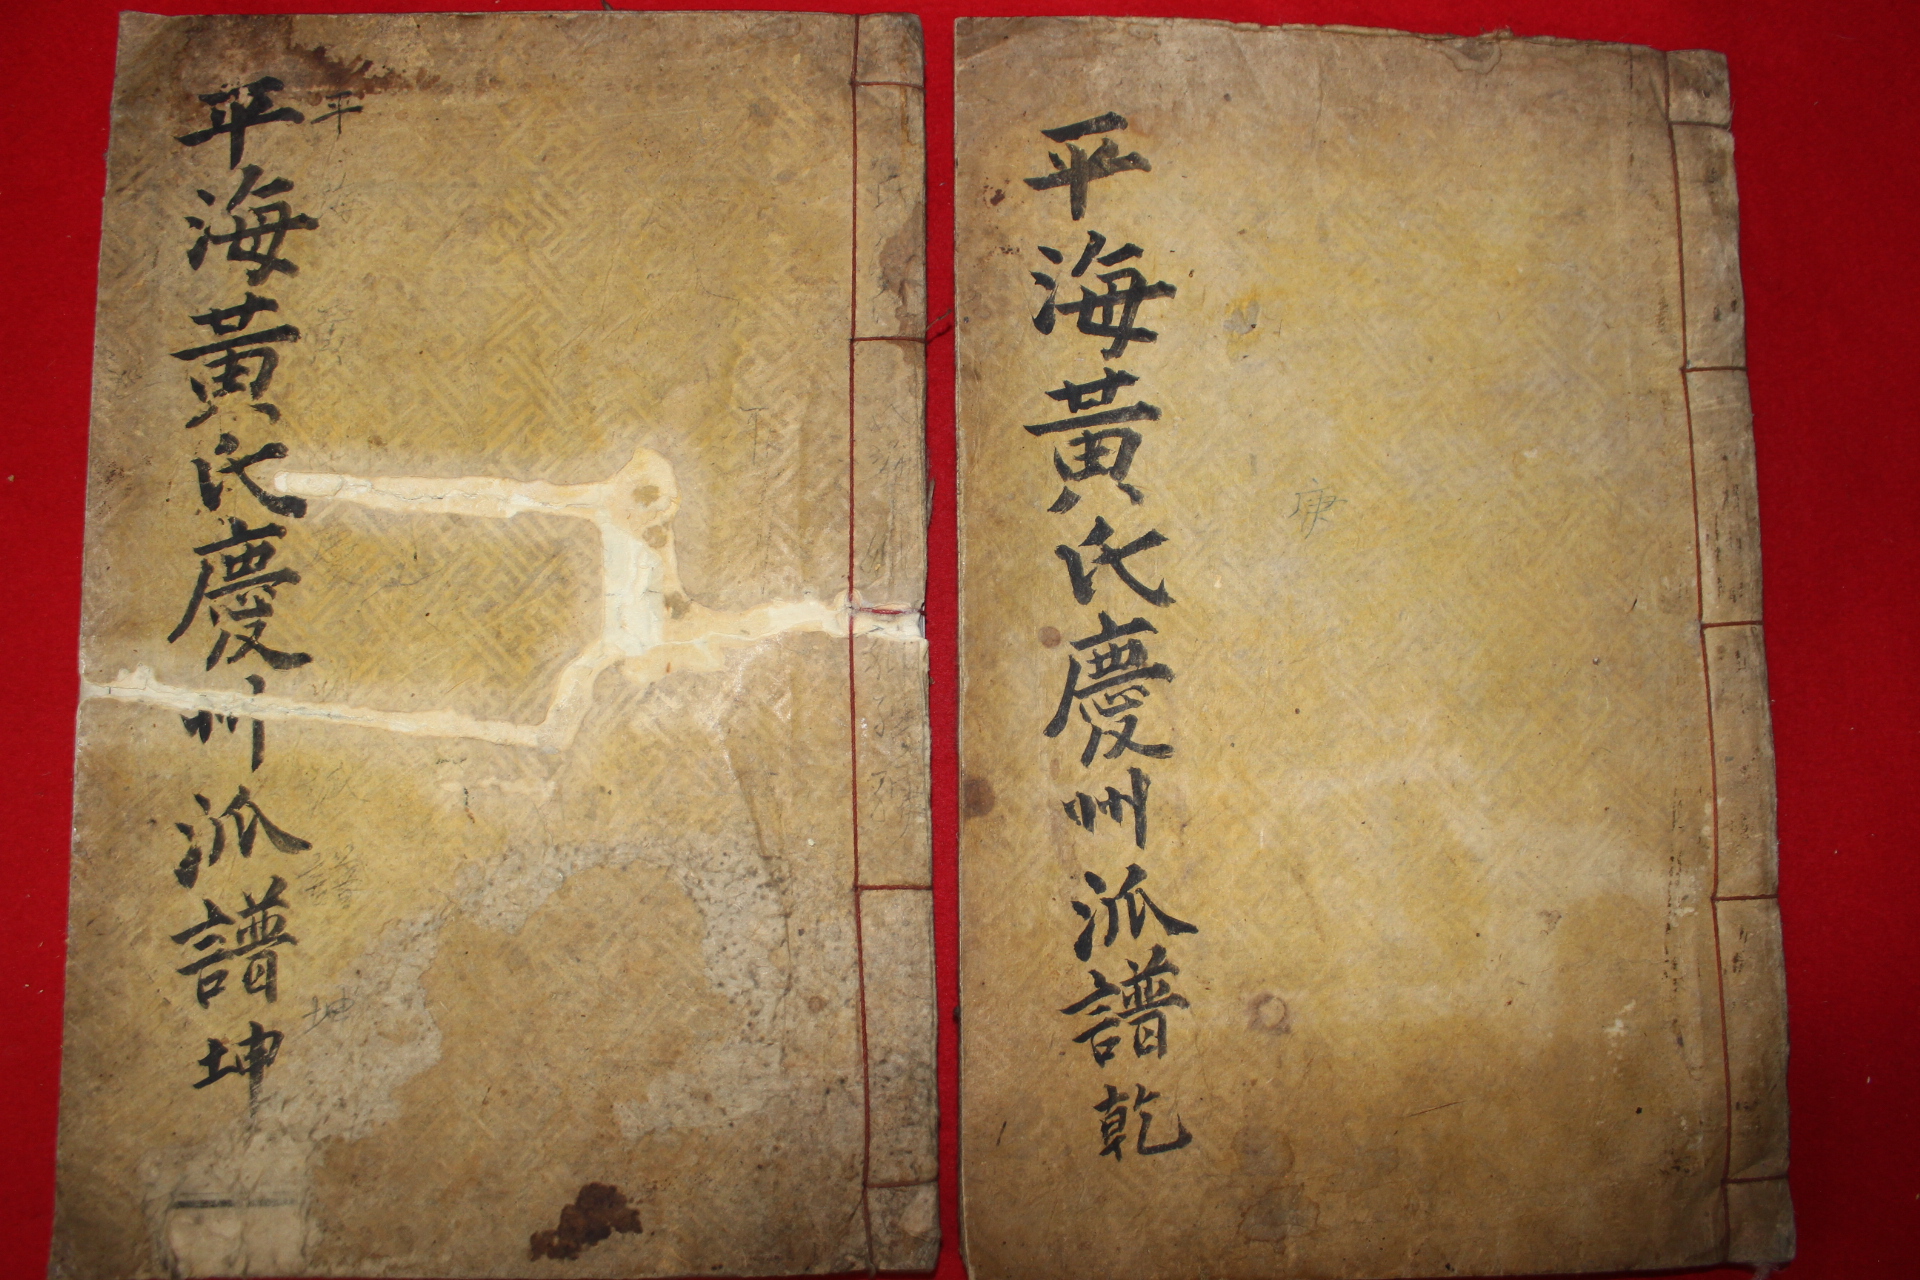 平海黃氏慶州派譜乾
庚
平海黃氏慶州派譜坤
平
黃
譜
坤
下
氏